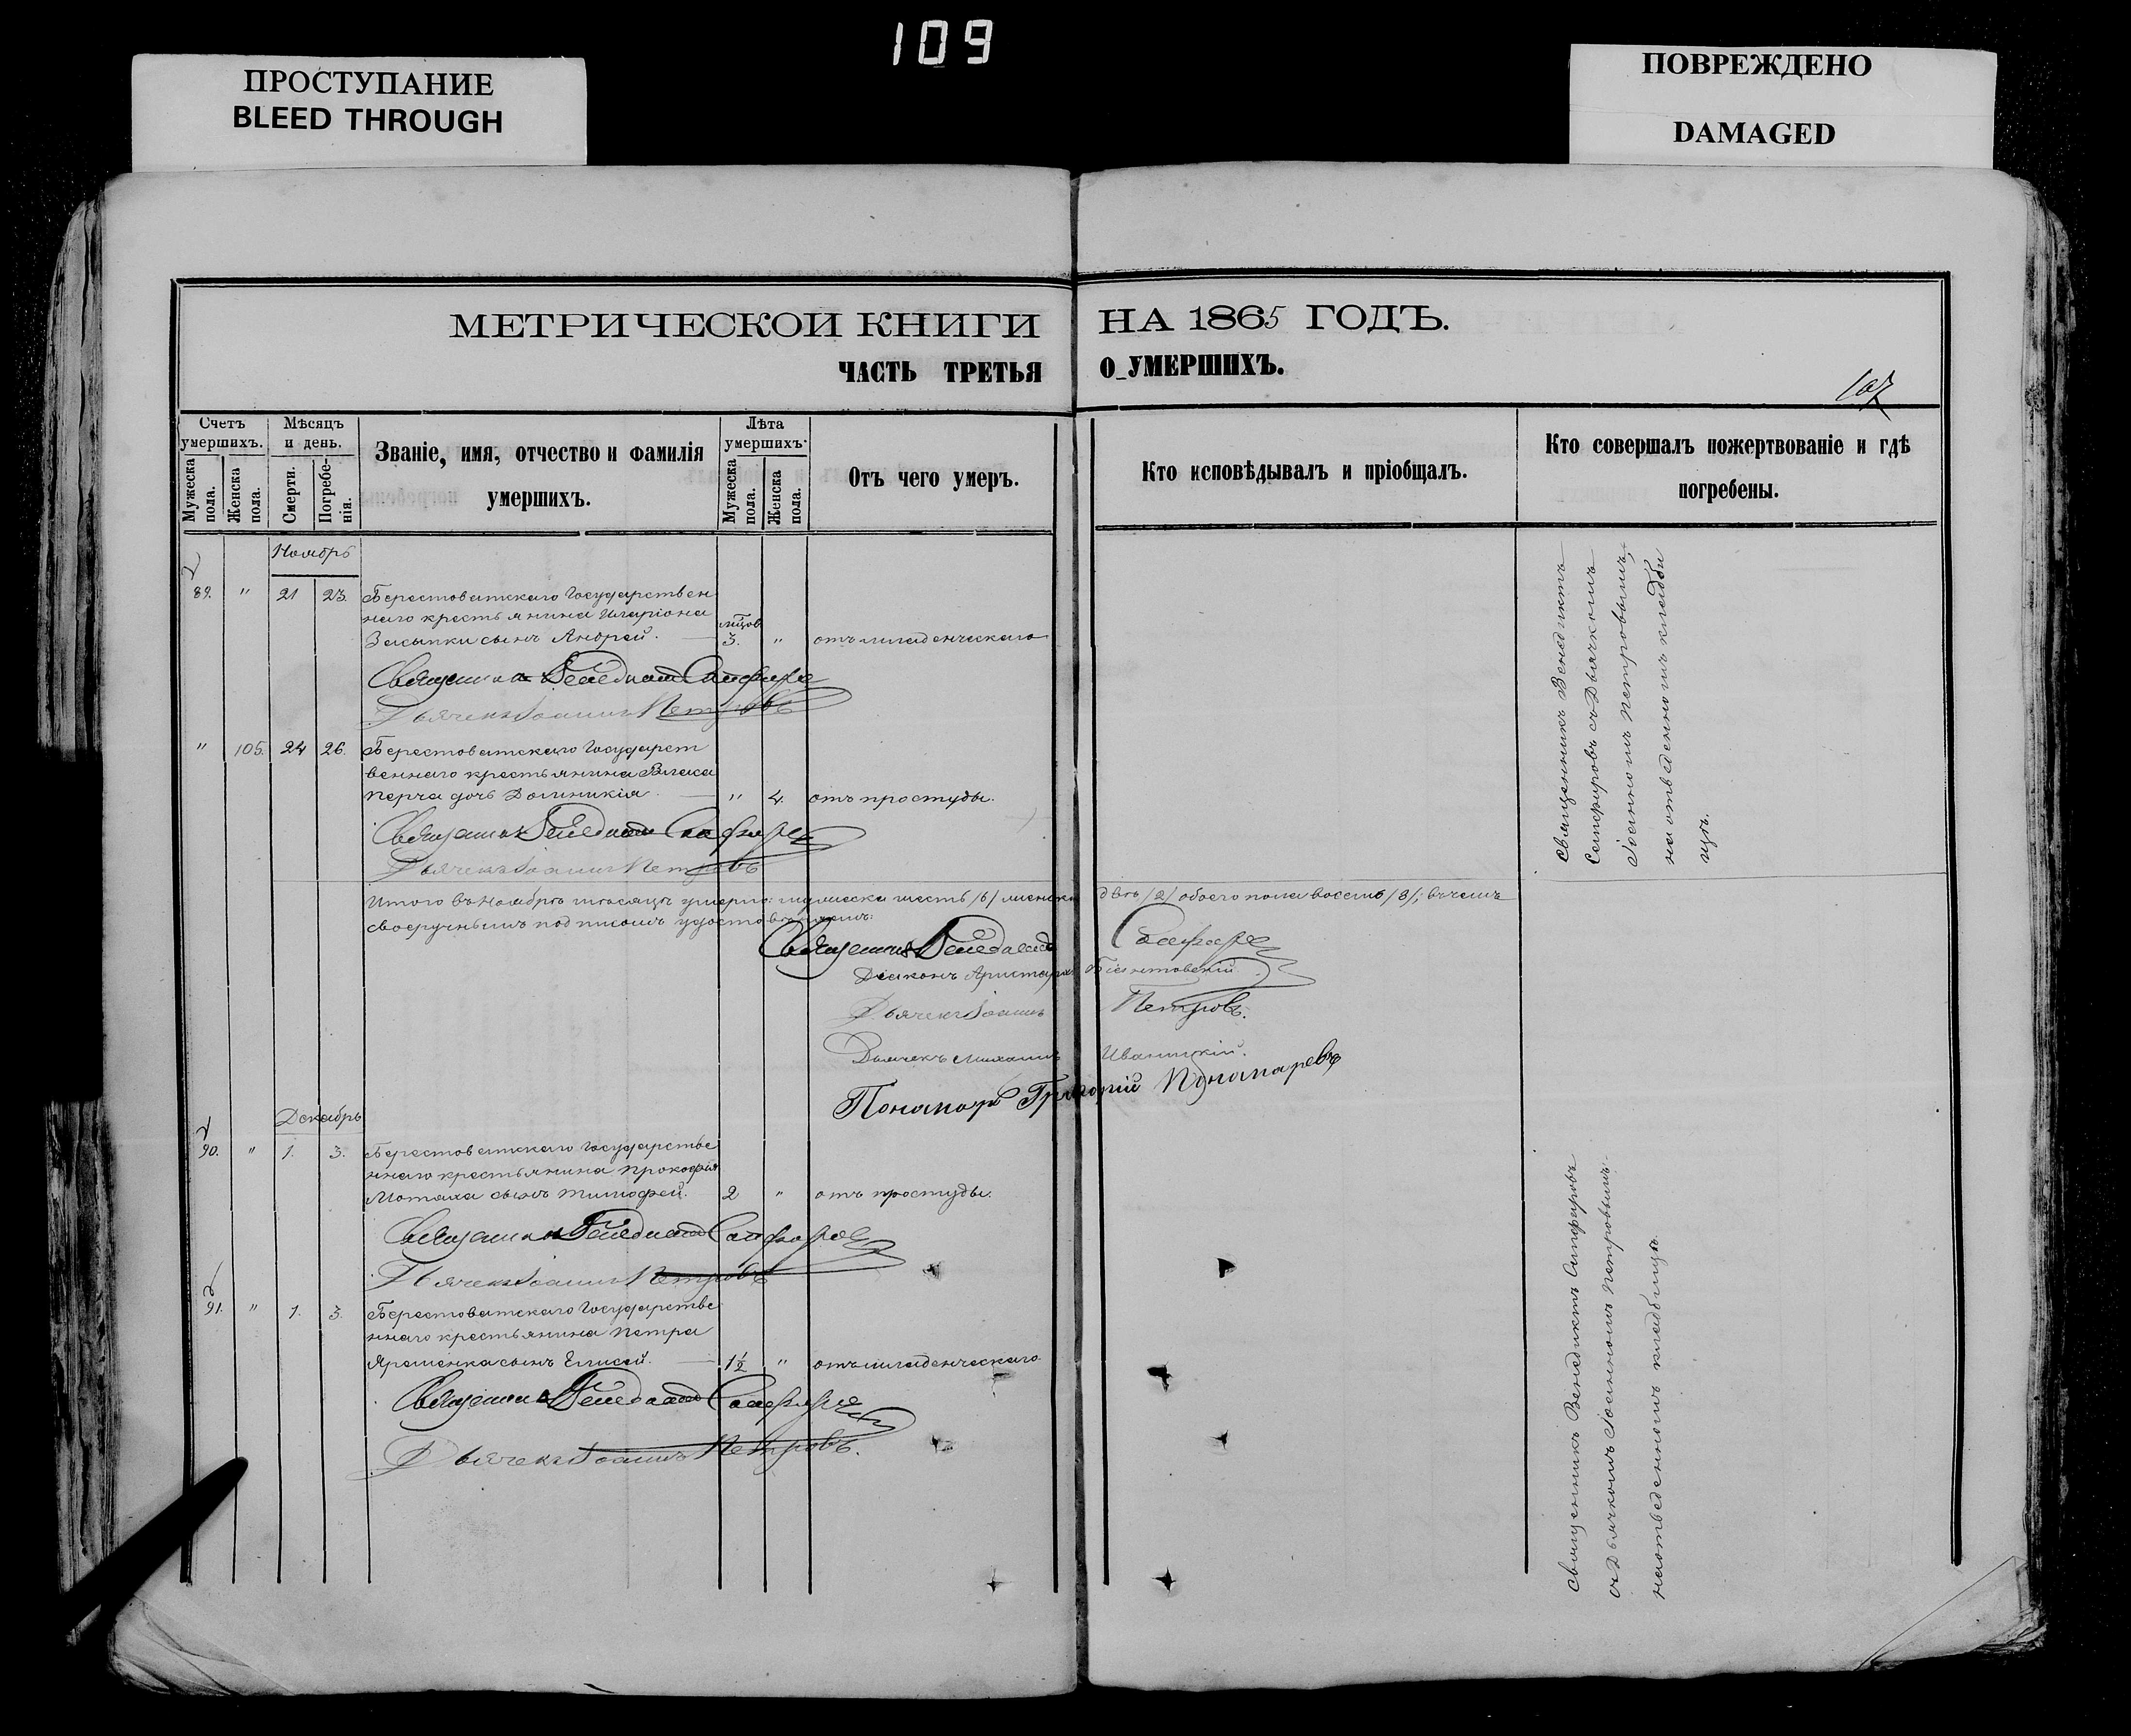 109
ПРОСТУПАНИЕ
BLEED THROUGH
ПОВРЕЖДЕНО
DAMAGED
МЕТРИЧЕСКОЙ КНИГИ НА 1865 ГОДЪ.
ЧАСТЬ ТРЕТЬЯ О УМЕРШИХЪ.
107
Счетъ умершихъ.
Мужеска пола.
Женска пола.
Мѣсяцъ и день.
Смерти.
Погребе-нія.
Званіе, имя, отчество и фамилія
умершихъ.
Лѣта умершихъ.
Мужеска пола.
Женска пола.
Отъ чего умеръ.
Кто исповѣдывалъ и пріобщалъ.
Кто совершалъ пожертвованіе и гдѣ
погребены.
Ноябрь
89. " 21 23. Берестоватскаго Государствен
наго крестьянина Иларіона
Засыпки сынъ Андрей. 3. " отъ младенческаго
Священникъ Венедиктъ Сапфировъ
Дьячекъ Іоаннъ Петровъ
" 105. 24 26. Берестоватскаго Государст
веннаго крестьянина Власа
Перча дочь Доминикія. " 4. отъ простуды.
Священникъ Венедиктъ Сапфировъ
Дьячекъ Іоаннъ Петровъ
Священникъ Венедиктъ
Сапфировъ съ Дьячкомъ
Іоанномъ Петровымъ,
на отведенномъ кладби
щѣ.
Итого въ Ноябрѣ мѣсяцѣ умерло: мужеска шесть /6/ женска двѣ /2/ обоего пола восемь /8/; въ чемъ
своеручнымъ подписомъ удостовѣряемъ:
Священникъ Венедиктъ Сапфировъ
Діаконъ Аристархъ
Дьячекъ Іоаннъ Петровъ.
Дьячекъ Михаилъ Иваницкій.
Пономарь Григорій Пономаревъ
Декабрь
90. " 1. 3. Берестоватскаго Государстве
ннаго крестьянина Прокофія
Мотяха сынъ Тимофей. 2 " отъ простуды.
Священникъ Венедиктъ Сапфировъ
Дьячекъ Іоаннъ Петровъ
91. " 1. 3. Берестоватскаго Государстве
ннаго крестьянина Петра
Яременка сынъ Елисей. 1½ " отъ младенческаго
Священникъ Венедиктъ Сапфировъ
Дьячекъ Іоаннъ Петровъ.
Священникъ Венедиктъ Сапфировъ
съ Дьячкомъ Іоанномъ Петровымъ
на отведенномъ кладбищѣ.